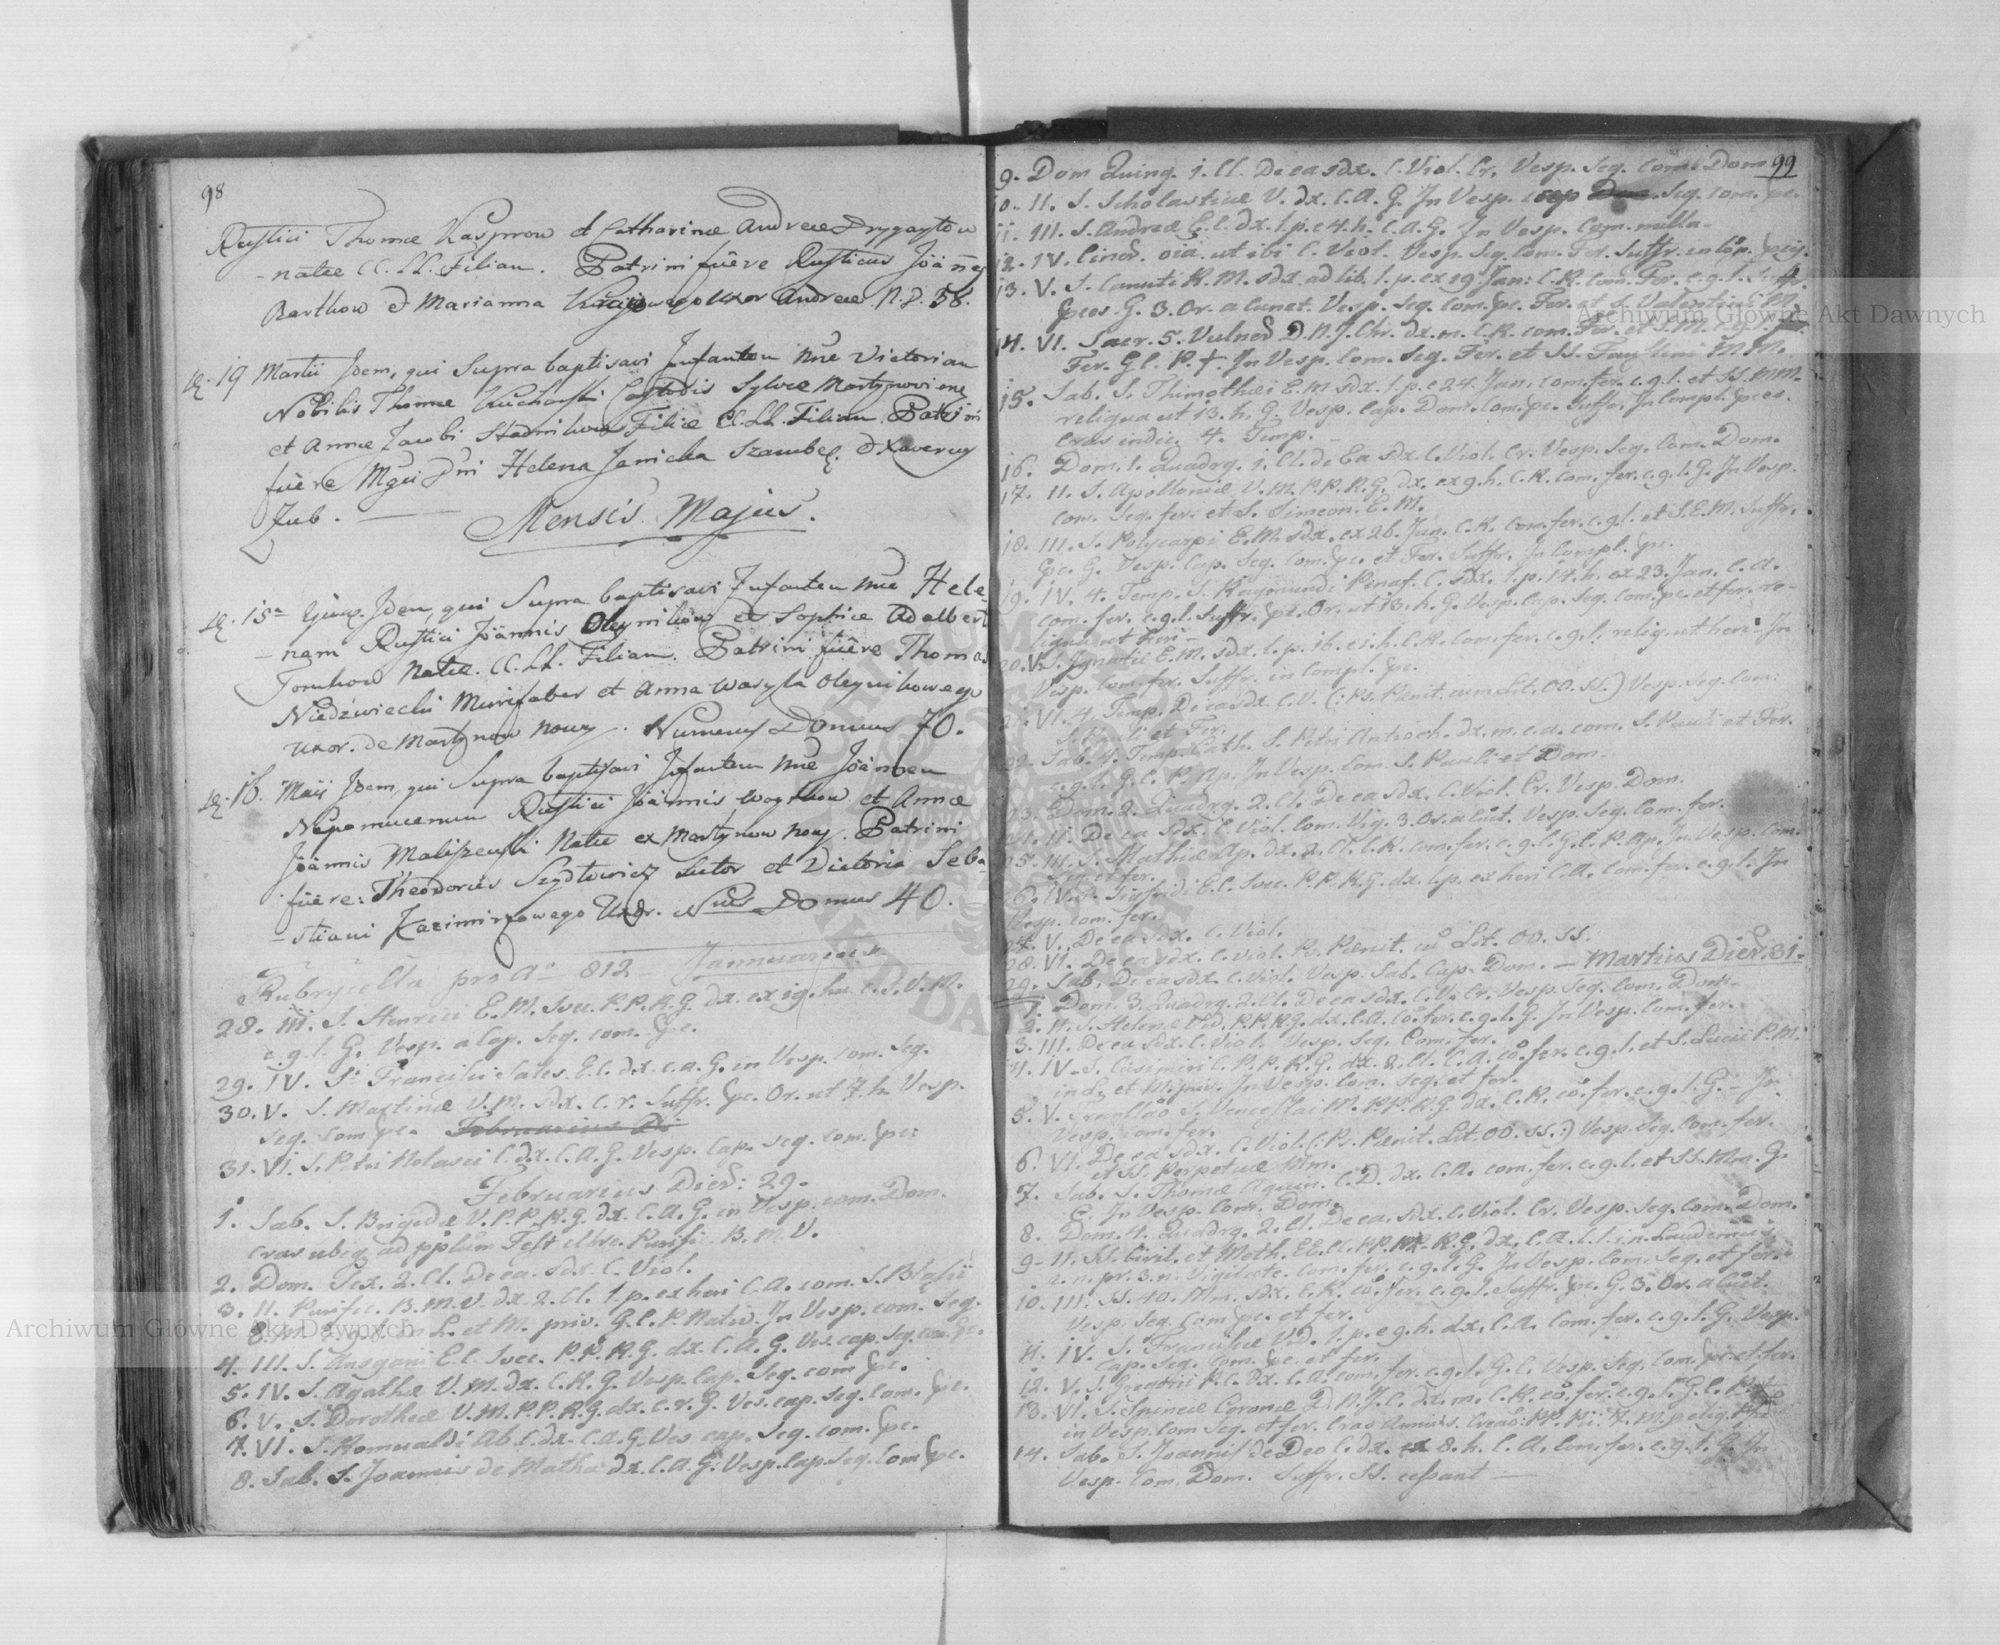 98
Rustici Thomæ Kasprow et Catharinæ Andreæ Drygaytow
- natæ CC. LL. Filiam. Patrini fuêre Rusticus Joannes
Barthow et Marianna uxor Andreæ N. D. 58.
19 Martii Idem, qui Supra baptisavi Infantem nne Victoriam
Nobilis Thomæ Kucharski Custodis Sylvæ Martynoviens
et Annæ Jacobi Filiæ CC. LL. Filiam. Patrini
fuêre Mgci Dni Helena Janicka Szambel. et Xaverus
Jub.
Mensis Majus.
15a Ejusq. Idem, qui Supra baptisavi Infantem nne Hele-
- nam Rustici Joannis Oleynikow et Sophiæ Adalberti
Tomkow Natæ. CC. LL. Filiam. Patrini fuêre Thomas
Niedzwiecki Murifaber et Anna Wasyla Oleynikowego
uxor. de Martynow nowy. Numerus Domus 70.
16. Maij Idem, qui Supra baptisavi Infantem nne Joannem
Nepomucenum Rustici Joannis Woytkow et Annæ
Joannis Maliszewski Natæ ex Martynow nowy. Patrini
fuêre: Theodorus Szydlowicz Sutor et Victoria Seba-
- stiani Kazimirzowego Uxor. Nrus Domus 40.
Rubrycella pro Ao 812 Januarius
28. III. S. Henrici E. M. Svec. P. P. R. G. dx. ex 19. hu. C. R. V. M.
c. g. l. G. Vesp. a Cap. Seq. com. &pc.
29. IV. Si Francisci Sales. E. C. dx. c. a. G. in Vesp. com. Seq.
30. V. S. Martinæ V. M. sdx. c. r. Suffr. &pc. Or. ut 7. h. Vesp.
seq. com. &pc. Februarius Di
31. VI. S. Petri Nolasci C. dx. C. A. G. Vesp. Cap. seq. com. &pc:
Februarius Dier: 29.
1. Sab. S. Brigidæ V. P. P. R. G. dx. C. A. G. in Vesp. com. Dom.
Cras ubeq ad pplum Fest Purific. B. M. V.
2. Dom. Sex. 2. Cl. De ea. sdx. C. Viol.
3. II. Purific. B. M. V. dx 2. Cl. 1. p. ex heri C. A. com. S. Blasii
E. M. in L. et M. priv. G. C. P. Nativ. In Vesp. com. Seq.
4. III. S. Ansgarii E. C. Svec. P. P. R. G. dx. C. A. G. Ves. cap. seq. com. &pc.
5. IV. S. Agathæ V. M. dx. C. R. G. Vesp. Cap. Seq. com &pc.
6. V. S. Dorotheæ V. M. P. P. R. G. dx. c. r. G. Ves. cap. seq. com. &pc.
7. VI. S. Romualdi Ab. C. dx. C. A. G. Ves cap. Seq. com. &pc.
8. Sab. S. Joannis de Matha dx. C. A. G. Vesp. Cap. Seq. com &pc.
99
9. Dom Quinq. 1. Cl. De ea sdx. C. Viol. Cr. Vesp. Seq. Com. Dom
10. II. S. Scholasticæ V. dx. C. A. G. In Vesp. Seq. com. &pc.
11. III. S. Andreæ E. C. dx. 1. p. e 4. h. C. A. G. In Vesp. Com. nulla-
12. IV. Cined. oia. ut ibi C. Viol. Vesp. Seq. Com. Fer. Suffr. in Cop. &pces.
13. V. S. Canuti R. M. sdx ad lib. 1. p. ex 19 Jan: C. R. Com. Fer. c. g. l. Suffr.
&pces. G. 3. Or. a cunct. Vesp. Seq. Com. &pc. Fer. et S. Valentini M.
14. VI. Sacr. 5. Vulned D. N. J. Chr. dx. m. C. R. com. Fer. et S. M. c. g. l.
Fer. Gl. P. † In Vesp. Com. Seq. Fer. et SS. Faustini M M.
15. Sab. S. Thimothei E. M sdx. 1. p. e 24. Jan. com. fer. c. g. l. et SS. MM.
reliqua ut 13. h. G. Vesp. Cap. Dom. Com. &pc. Suffr. In Compl. &pces.
Cras indic. 4. Temp.
16. Dom. 1. Quadrg. 1. Cl. de Ea sdx. C. Viol. Cr. Vesp. Seq. Com. Dom.
17. II. S. Apolloniæ V. M. P. P. R. G. dx. ex 9. h. C. R. Com. fer. c. g. l. G. In Vesp.
Com. Seq. fer. et S. Simeon. E. M.
18. III. S. Polycarpi E. M. sdx. ex 26. Jan. C. R. Com. fer. c. g. l. et S. E. M. Suffr.
&pc. G. Vesp. Cap. Seq. Com. &pc. et Fer. Suffr. In Compl. &pc.
19. IV. 4. Temp. S. Raymundi Penaf. C. sdx. 1. p. 14. h. ex 23. Jan. C. A.
com. fer. c. g. l. Suffr. &pc. Or. ut 13. h. G. Vesp. Cap. Seq. Com. &pc. et fer. re-
liqua ut heri-
20. V. S. Ignatii E. M. sdx. 1. p. 16. e 1. h. C. R. Com. fer. c. g. l. reliq. ut heri. In
Vesp. Com. fer. Suffr. in Compl. &pc.
21. VI. 4. Temp. De ea sdx. C. V. (: Ps. Pænit. cum Lit. OO. SS:) Vesp. Seq. Com:
S. Pauli et Fer.
22. Sab. 4. Temp. Cath. S. Petri Antioch. dx. m. c. a. com. S. Pauli et Fer.
c. g. l. G. C. P. Ap. In Vesp. Com. S. Pauli et Dom.
23. Dom. 2. Quadrg. 2. Cl. De ea sdx. C. Viol. Cr. Vesp. Dom.
24. II. De ea sdx. C. Viol. Com. Vig. 3. Or. a cuct. Vesp. Seq. Com. fer.
25. III. S. Mathiæ Ap. dx. 2. Cl. C. R. com. fer. c. g. l. G. C. P. Ap. In Vesp. Com.
Seq. et fer.
26. IV. S. Sigfridi E. C. Svec. P. P. R. G. dx. 1. p. ex heri C. A. Com. fer. c. g. l. In
Vesp. com. fer.
27. V. De ea sdx. C. Viol.
28. VI. De ea sdx. C. Viol. Ps. Pænit. cu Lit. OO. SS.
29. Sab. De ea sdx. C. Viol. Vesp. Sab. Cap. Dom. - Martius Dier. 31.
1. Dom. 3. Quadrg. 2. Cl. De ea sdx. C. V. Cr. Vesp. Seq. Com. Dom.
2. II. S. Helenæ Vid. P. P. R. G. dx. C. A. co. fer. c. g. l. G. In Vesp. Com. fer.
3. III. De ea sdx. C. Viol. Vesp. Seq. Com. fer.
4. IV. S. Casimiri C. P. P. R. G. dx. 2. Cl. C. A. co. fer. c. g. l. et S. Lucii P. M.
in L. et M. priv. In Vesp. Com. Seq. et fer.
5. V. Translao S. Venceslai M. P. P. R. G. dx. C. R. co. fer. c. g. l. G. - In
Vesp. com. fer.
6. VI. De ea sdx. C. Viol. (: Ps. Pænit. Lit. OO. SS.:) Vesp. Seq. Com. fer.
et SS. Perpetuæ Mm.
7. Sab. S. Thomæ Aquin. C. D. dx. C. A. com. fer. c. g. l. et SS. Mm. G.
C. In Vesp. Com. Dom.
8. Dom. 4. Quadrg. 2. Cl. De ea. sdx. C. Viol. Cr. Vesp. Seq. Com. Dom.
9. II. SS. Ciril. et Meth. EE. CC. PP. R. G. dx. C. A. l. 1. i. n. Laudemus
2. n. pr. 3. n. Vigilate. Com. fer. c. g. l. G. In Vesp. Com. Seq. et fer.
10. III. SS. 40. Mm. sdx. C. R. co. fer. c. g. l. Suffr. &pc. G. 3. Or. a Cuct.
Vesp. Seq. Com &pc. et fer.
11. IV. S. Franciscæ Vid. 1. p. e 9. h. dx. C. A. Com. fer. c. g. l. G. Vesp.
Cap. Seq. Com. &pc. et fer.
12. V. S. Gregorii P. C. dx. C. A. com. fer. c. g. l. G. C. Vesp. Seq. Com. &pc. et fer.
13. VI. S. Spineæ Coronæ D. N. J. C. dx. m. C. R. co. fer. c. g. l. G. C.
in Vesp. Com Seq. et fer. Cras
14. Sab. S. Joannis de Deo C. dx. ex 8. h. C. A. Com. fer. c. g. l. G. In
Vesp. Com. Dom. Suffr. SS. cessant
Archiwum Główne Akt Dawnych
Archiwum Główne Akt Dawnych